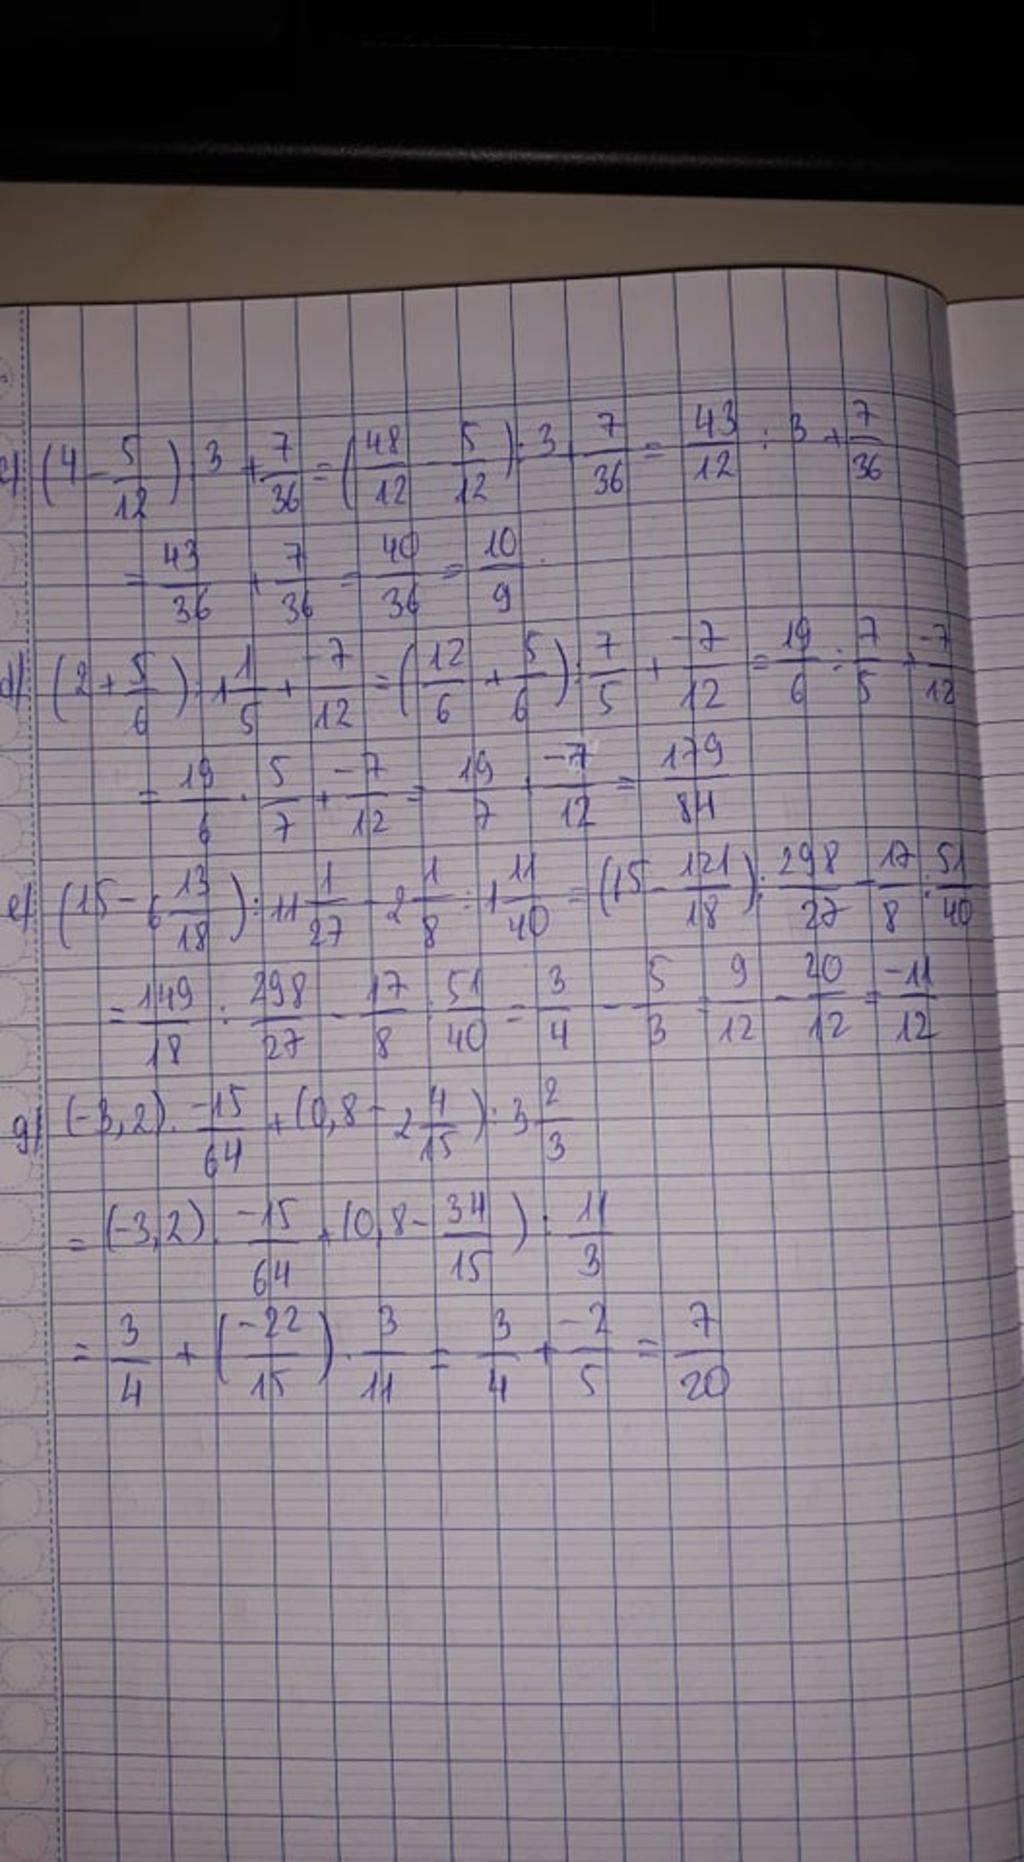 c) (4 - 5/12) : 3 + 7/36 = (48/12 - 5/12) : 3 + 7/36 = 43/12 : 3 + 7/36
= 43/36 + 7/36 = 40/36 = 10/9
d) (2 + 5/6) : 1 1/5 + -7/12 = (12/6 + 5/6) : 7/5 + -7/12 = 19/6 : 7/5 + -7/12
= 19/6 . 5/7 + -7/12 = 19/7 + -7/12 = 179/84
e) (15 - 6 13/18) : 11 1/27 - 2 1/8 : 1 11/40 = (15 - 121/18) : 298/27 - 17/8 : 51/40
= 149/18 : 298/27 - 17/8 : 51/40 = 3/4 - 5/3 = 9/12 - 20/12 = -11/12
g) (-3,2) . -15/64 + (0,8 - 2 4/15) : 3 2/3
= (-3,2) . -15/64 + (0,8 - 34/15) : 11/3
= 3/4 + (-22/15) . 3/11 = 3/4 + -2/5 = 7/20